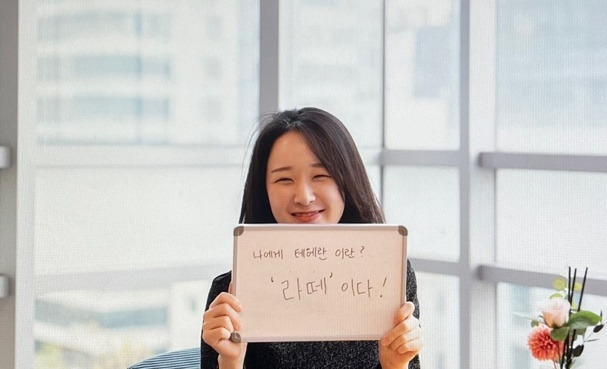 나에게 테헤란 이란?
'라떼' 이다!